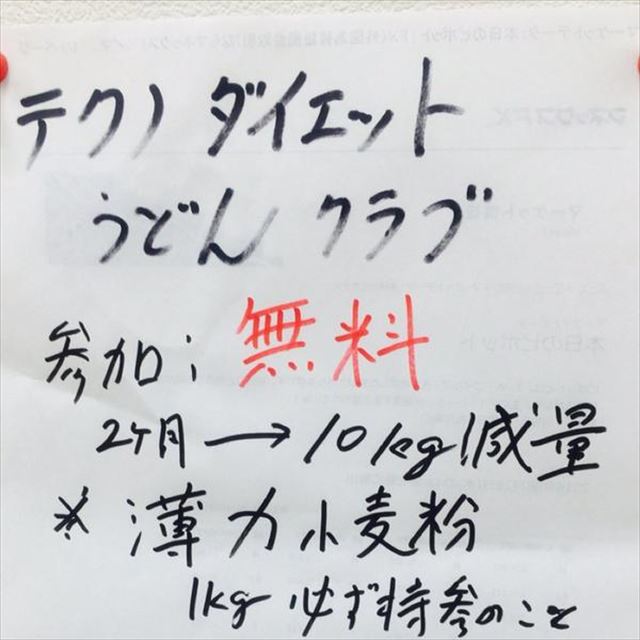 テクノ ダイエット
うどん クラブ
参加; 無料
2ヶ月→10kg減量
※ 薄力小麦粉
1kg 必ず持参のこと